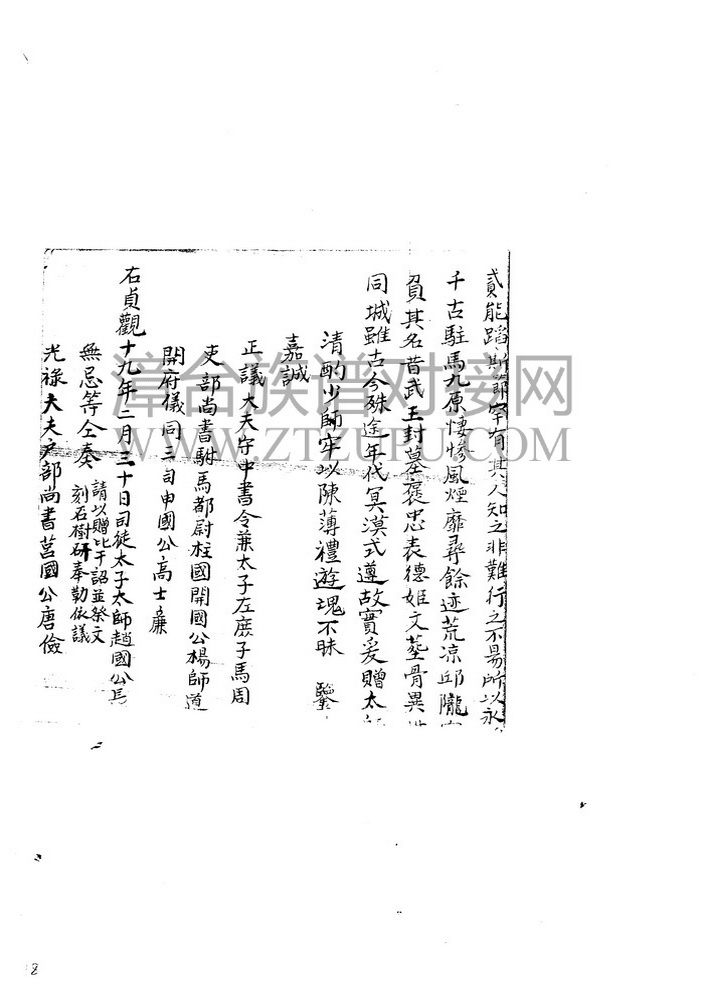 貳能蹈斯節罕有其人知之非難行之不易所以永
千古駐馬九原悽慘風煙靡尋餘迹荒凉邱隴
負其名昔武王封墓褒忠表德姬文塟骨異
同城雖古今殊途年代冥漠式遵故實爰贈太
清酌少師牢以陳薄禮遊塊不昧 鑒
嘉誠
正議大夫守中書令兼太子左庶子馬周
吏部尚書駙馬都尉柱國開國公楊師道
開府儀同三司申國公高士廉
右貞觀十九年二月三十日司徒太子太師趙國公長
無忌等仝奏 請以贈比干詔並祭文
刻石樹研奉勒依議
光祿大夫戶部尚書莒國公唐儉
漳台族谱对接网
WWW.ZTZUPU.COM
8